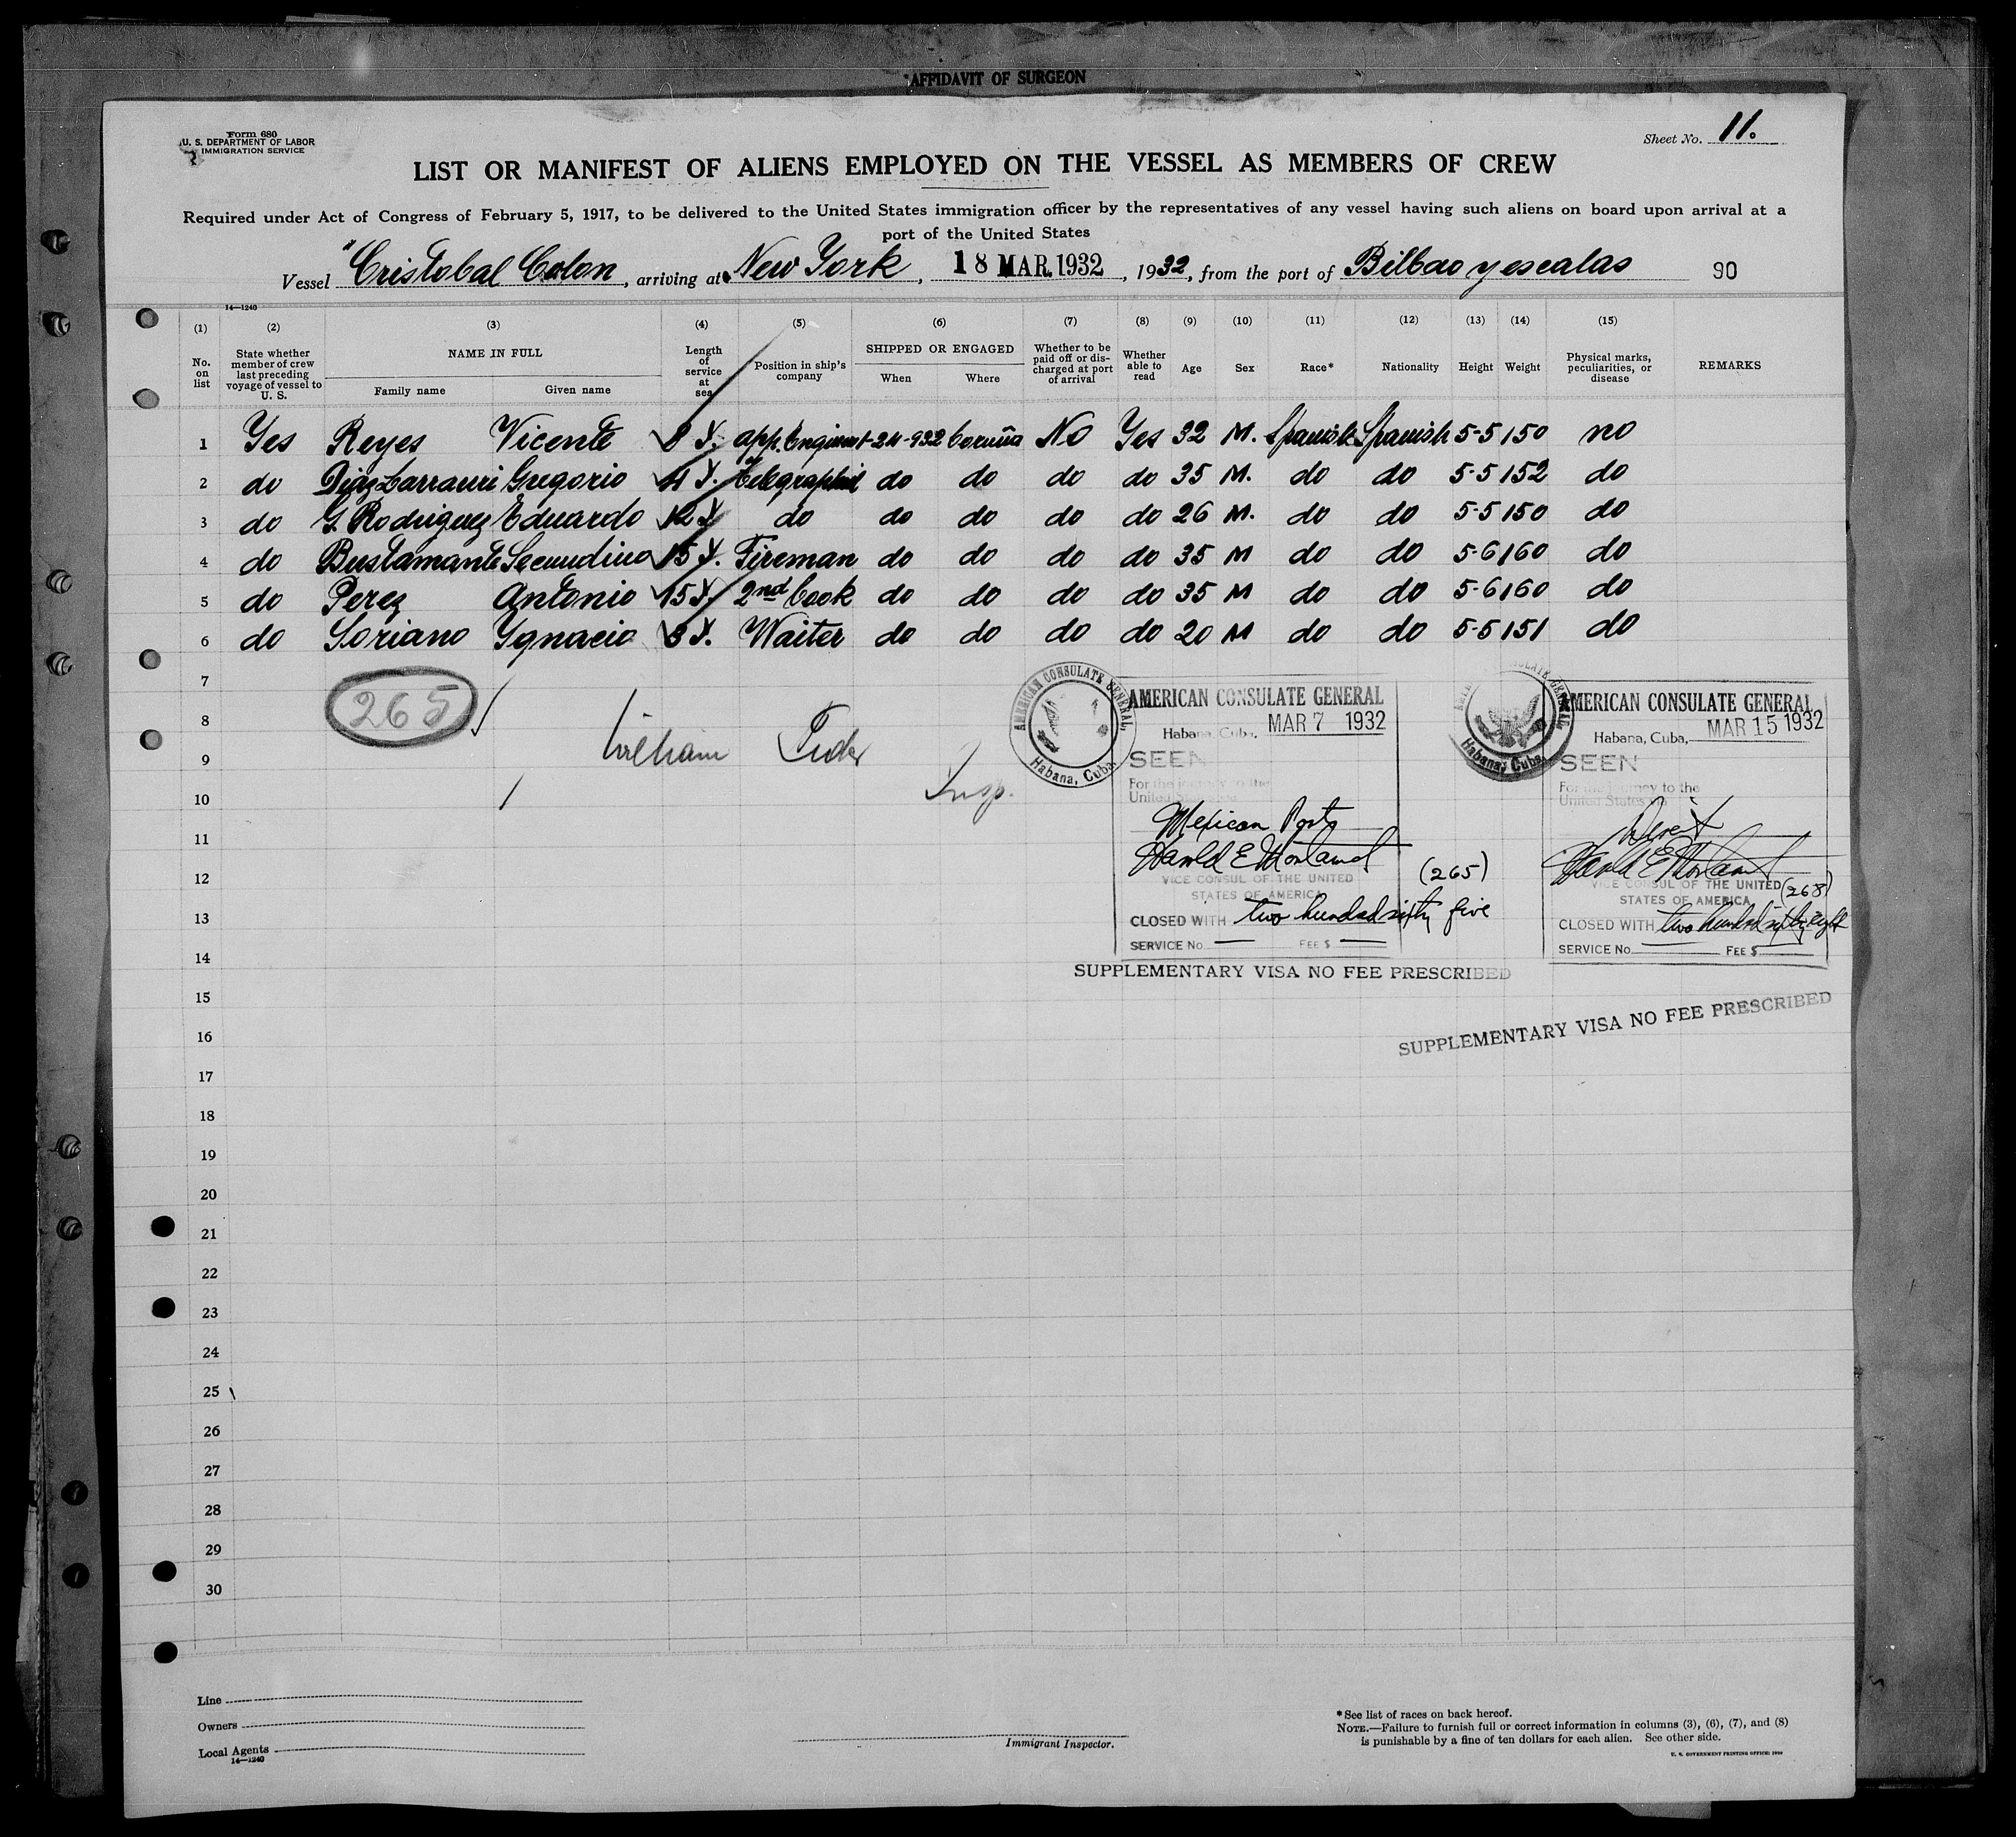 AFFIDAVIT OF SURGEON
Form 680
U. S. DEPARTMENT OF LABOR
IMMIGRATION SERVICE
Sheet No. 11.
LIST OR MANIFEST OF ALIENS EMPLOYED ON THE VESSEL AS MEMBERS OF CREW
Required under Act of Congress of February 5, 1917, to be delivered to the United States immigration officer by the representatives of any vessel having such aliens on board upon arrival at a
port of the United States
Vessel "Cristobal Colon, arriving at New York, 18 MAR. 1932, 1932, from the port of Bilbao y escalas 90
14—1240
(1) (2) (3) (4) (5) (6) (7) (8) (9) (10) (11) (12) (13) (14) (15)
No. on list State whether member of crew last preceding voyage of vessel to U. S. NAME IN FULL Family name Given name Length of service at sea Position in ship's company SHIPPED OR ENGAGED When Where Whether to be paid off or discharged at port of arrival Whether able to read Age Sex Race* Nationality Height Weight Physical marks, peculiarities, or disease REMARKS
1 Yes Reyes Vicente 8 Y. app. Engineer 1-24-932 Coruña No Yes 32 M. Spanish Spanish 5-5 150 no
2 do Diaz Larrauri Gregorio 4 Y. Telegraphist do do do do 35 M. do do 5-5 152 do
3 do G. Rodriguez Eduardo 12 Y do do do do do 26 M. do do 5-5 150 do
4 do Bustamante Secundino 15 Y. Fireman do do do do 35 M do do 5-6 160 do
5 do Perez Antonio 15 Y. 2nd Cook do do do do 35 M do do 5-6 160 do
6 do Soriano Ygnacio 3 Y. Waiter do do do do 20 M do do 5-5 151 do
7
8
9
10
11
12
13
14
15
16
17
18
19
20
21
22
23
24
25
26
27
28
29
30
265
William
Insp.
AMERICAN CONSULATE GENERAL
Habana, Cuba.
AMERICAN CONSULATE GENERAL
Habana, Cuba, MAR 7 1932
SEEN
For the journey to the
United States
Mexican Ports
Harold E Morland
VICE CONSUL OF THE UNITED
STATES OF AMERICA
(265)
CLOSED WITH two hundred sixty five
SERVICE No. — FEE $ —
SUPPLEMENTARY VISA NO FEE PRESCRIBED
Habana, Cuba
AMERICAN CONSULATE GENERAL
Habana, Cuba, MAR 15 1932
SEEN
For the journey to the
United States via
Direct
Harold E Morland
VICE CONSUL OF THE UNITED
STATES OF AMERICA
(268)
CLOSED WITH two hundred sixty eight
SERVICE No. FEE $
SUPPLEMENTARY VISA NO FEE PRESCRIBED
Line
Owners
Local Agents
14—1240
Immigrant Inspector.
*See list of races on back hereof.
NOTE.—Failure to furnish full or correct information in columns (3), (6), (7), and (8)
is punishable by a fine of ten dollars for each alien. See other side.
U. S. GOVERNMENT PRINTING OFFICE: 1930